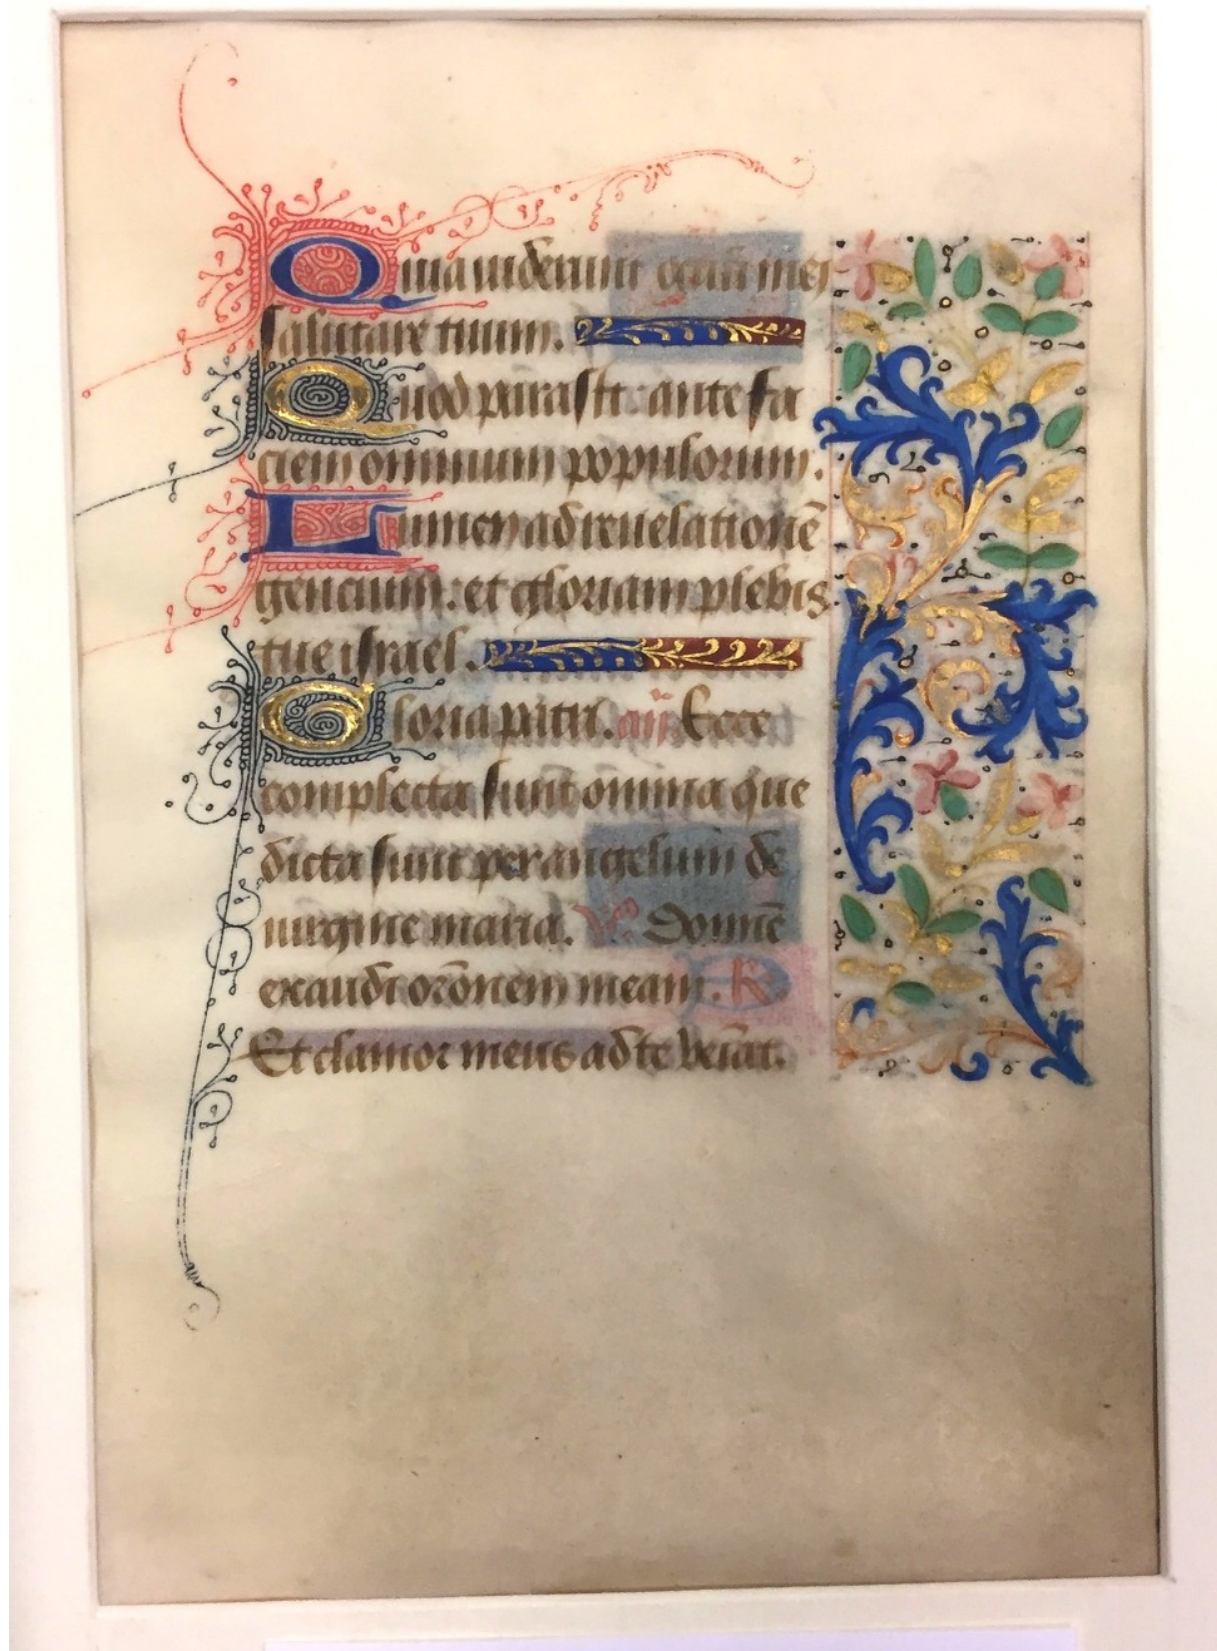 Quia uiderunt oculi mei
salutare tuum.
Quod parasti : ante fa
ciem omnium populorum.
Lumen ad reuelationē
gencium : et gloriam plebis
tue israel.
Gloria patri. añ Ecce
complecta sunt omnia que
dicta sunt per angelum de
uirgine maria. Vs. Domine
exaudi orōnem meam. R
Et clamor meus ad te veniat.